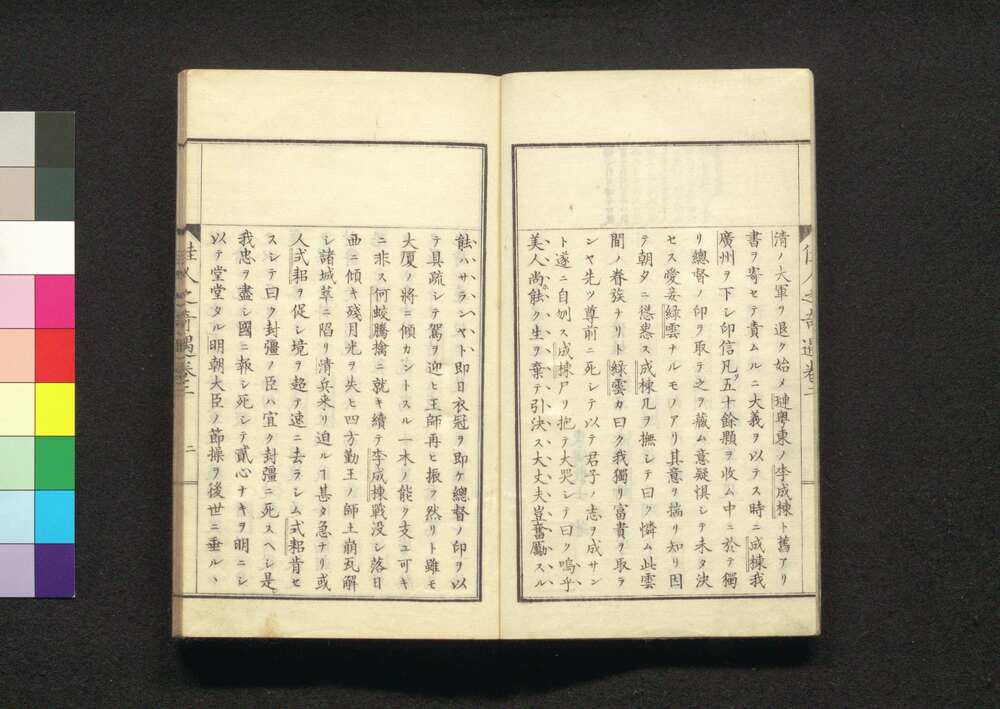 清ノ大軍ヲ退ク始メ璉粤東ノ李成棟ト舊アリ
書ヲ寄セテ責ムルニ大義ヲ以テス時ニ成棟我
廣州ヲ下シ印信凡五十餘顆ヲ收ム中ニ於テ獨
リ總督ノ印ヲ取テ之ヲ藏ム意疑惧シテ未タ決
セス愛妾緑雲ナルモノアリ其意ヲ揣リ知リ因
テ朝夕ニ慫慂ス成棟几ヲ撫シテ曰ク憐ム此雲
間ノ眷族ナリト緑雲カ曰ク我獨リ富貴ヲ取ラ
ンヤ先ツ尊前ニ死シテ以テ君子ノ志ヲ成サン
ト遂ニ自刎ス成棟尸リ抱テ大哭シテ曰ク嗚乎
美人尚能ク生ヲ棄テ引決ス大丈夫豈奮勵スル
能ハサランヤト即日衣冠ヲ即ケ總督ノ印ヲ以
テ具疏シテ駕ヲ迎ヒ王師再ヒ振フ然リト雖モ
大厦ノ將ニ傾カントスル一木ノ能ク支ユ可キ
ニ非ス何蛟騰擒ニ就キ續テ李成棟戰没シ落日
西ニ傾キ殘月光ヲ失ヒ四方勤王ノ師土崩瓦解
シ諸城草ニ陷リ清兵来リ迫ルヿ甚タ急ナリ或
人式耜ヲ促シ境ヲ超テ速ニ去ラシム式耜肯セ
スシテ曰ク封彊ノ臣ハ宜ク封彊ニ死スヘシ是
我忠ヲ盡シ國ニ報シ死シテ貳心ナキヲ明ニシ
以テ堂堂タル明朝大臣ノ節操ヲ後世ニ垂ルヽ
佳人之奇遇卷二
二